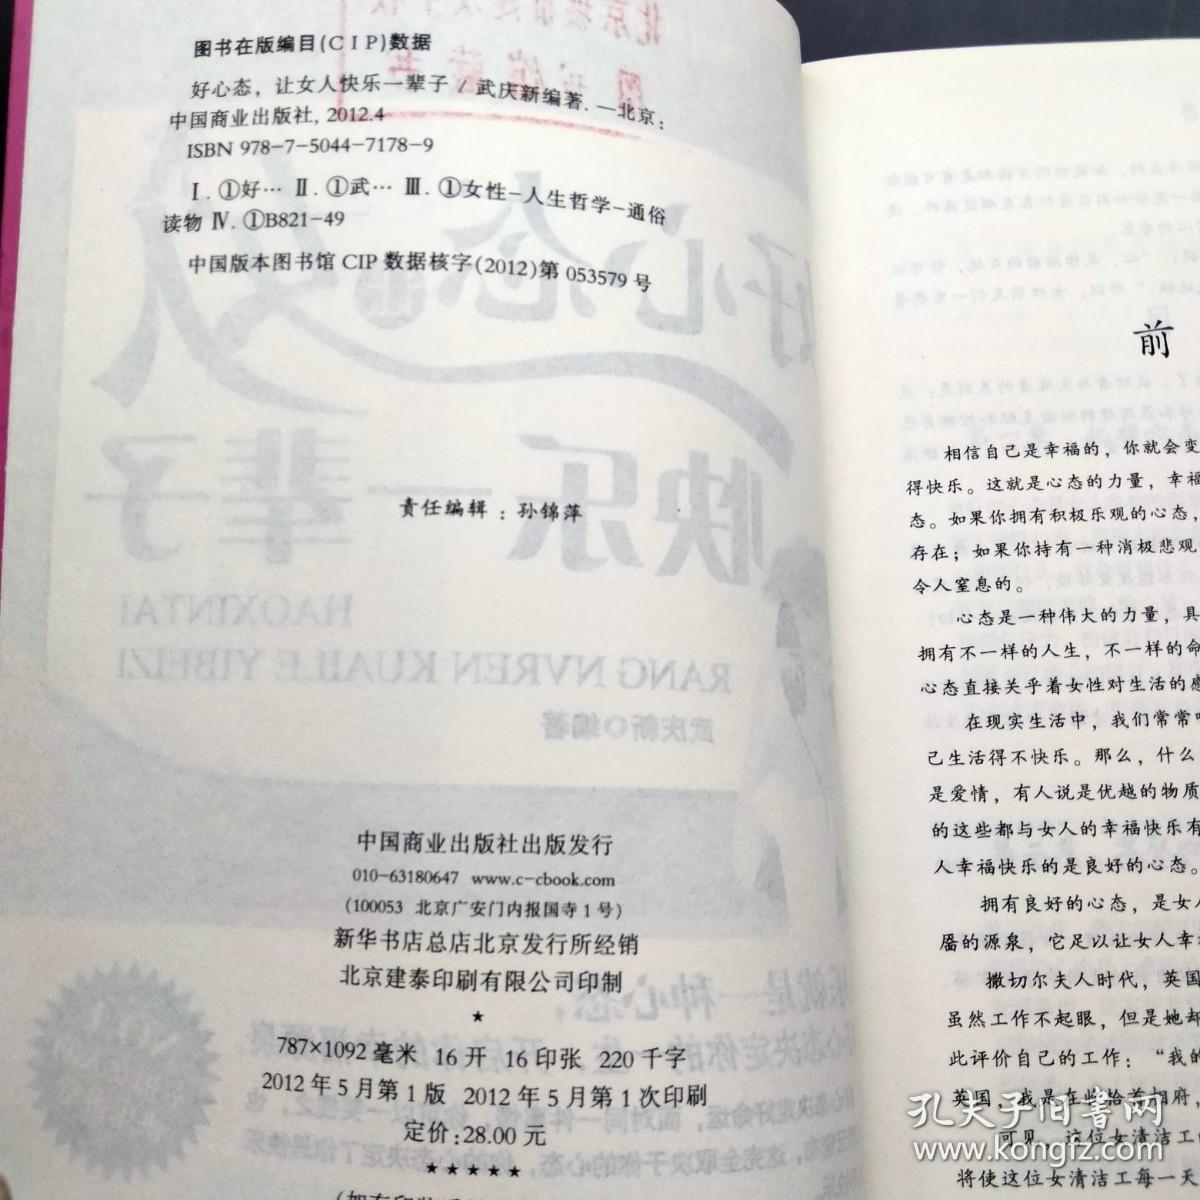 图书在版编目(CIP)数据
好心态，让女人快乐一辈子 / 武庆新编著. —北京：
中国商业出版社, 2012.4
ISBN 978-7-5044-7178-9
Ⅰ. ①好… Ⅱ. ①武… Ⅲ. ①女性-人生哲学-通俗
读物 Ⅳ. ①B821-49
中国版本图书馆 CIP 数据核字(2012)第 053579 号
好心态 让 女人
快乐一辈子
责任编辑：孙锦萍
HAOXINTAI
RANG NVREN KUAILE YIBEIZI
武庆新◎编著
中国商业出版社出版发行
010-63180647 www.c-cbook.com
(100053 北京广安门内报国寺1号)
新华书店总店北京发行所经销
北京建泰印刷有限公司印制
★
787×1092毫米 16开 16印张 220千字
2012年5月第1版 2012年5月第1次印刷
定价:28.00元
★★★★★
前
相信自己是幸福的，你就会变
得快乐。这就是心态的力量，幸福
态。如果你拥有积极乐观的心态，
存在；如果你持有一种消极悲观
令人窒息的。
心态是一种伟大的力量，具
拥有不一样的人生，不一样的命
心态直接关乎着女性对生活的感
在现实生活中，我们常常
己生活得不快乐。那么，什么
是爱情，有人说是优越的物质
的这些都与女人的幸福快乐有
人幸福快乐的是良好的心态。
拥有良好的心态，是女人
靥的源泉，它足以让女人幸
撒切尔夫人时代，英国
虽然工作不起眼，但是她却
此评价自己的工作：“我的
英国，我是在些拾首相府，
可见，这位女清洁工
将使这位女清洁工每一天
孔夫子旧书网
www.kongfz.com